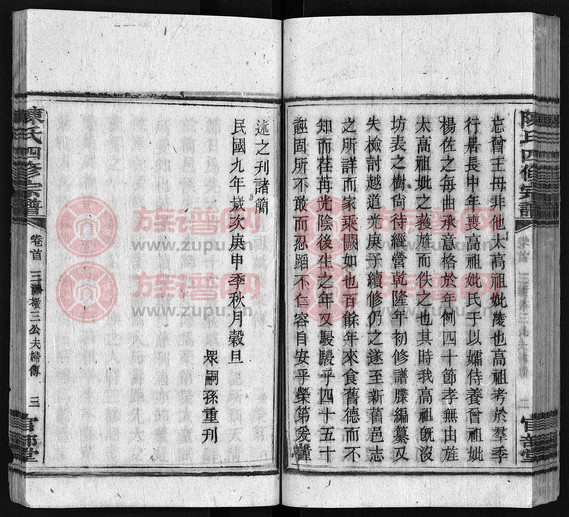 陳氏四修宗譜
卷首
官部堂
忘曾王母非他太高祖妣陵也高祖考於羣季
行居長中年喪高祖妣氏于以孀侍養曾祖妣
楊佐之每曲承意格於年例四十節孝無由旌
太高祖妣之獲旌而佚之也其時我高祖旣沒
坊表之樹尙待經營乾隆年初修譜牒編纂又
失檢討越道光庚子續修仍之遂至新舊邑志
之所詳而家乘闕如也百餘年來食舊德而不
知而荏苒光陰後生之年又駸駸乎四十五十
誣固所不敢而忍蹈不仁容自安乎榮第爰謹
述之刊諸簡
民國九年歲次庚申季秋月穀旦
衆嗣孫重刋
陳氏四修宗譜
卷首
三公夫婦傳
三
官部堂
族谱网
www.zupu.cn